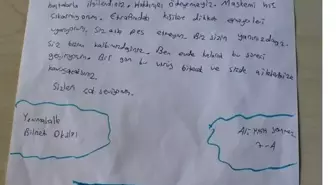 hastalarla ilgilendiniz. Hakkınızı ödeyemeyiz. Maskemi hiç
çıkarmıyorum. Etrafımdaki kişileri dikkat etmeyenleri
uyarıyorum. Siz asla pes etmeyin. Biz sizin yanınızdayız.
Siz bizim kalbimizdesiniz. Ben evde kalarak bu süreci
geçiriyorum. Bir gün bu virüs bitecek ve sizde ailelerinize
kavuşacaksınız.
Sizleri çok seviyorum.
Yenimahalle
Bilnet Okulu
Ali
7-A